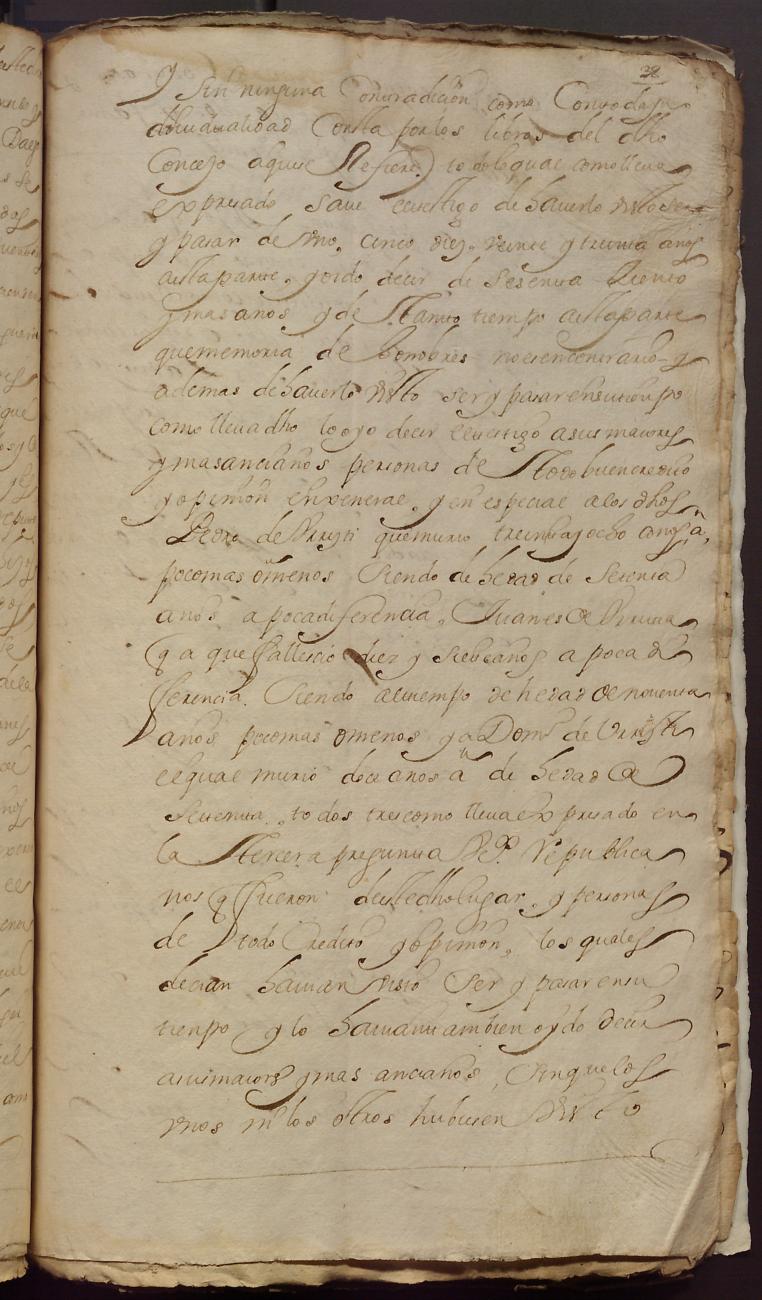 32
Y sin ninguna Contradicion como Con toda yn
dibidualidad Consta por los libros del dho
Concejo aque se Refiere) todo lo qual como lleva
expresado save el testigo de haverlo visto ser
y pasar de uno, cinco diez, veinte y treinta años
a esta parte, y oido decir de sesenta Ziento
y mas años y de Tanto tiempo a esta parte
que memoria de hombres no es en contrario y
ademas de haverlo visto ser y pasar en su tienpo
como lleva dho lo oyo decir el testigo a sus maiores
y mas ancianos personas de Todo buen credito
y opinion en xeneral, y en especial a los dhos
Pedro de que murio treinta y ocho años a,
poco mas ô menos siendo de hedad de setenta
anos a poca diferencia, Juanes de
q a que fallescio diez y siete años a poca di
ferencia. siendo al tiempo de hedad de noventa
años poco mas o menos y a Domº de
el qual murio doce años a de hedad de
setenta, todos tres como lleva expresado en
la Tercera pregunta Vºs Republica
nos q fueron deste dho lugar, y personas
de todo Credito y opinion, los quales
decian havian visto ser y pasar en su
tienpo y lo havian tambien oydo decir
a sus maiores y mas ancianos, sin que los
vnos ni los otros hubiesen visto